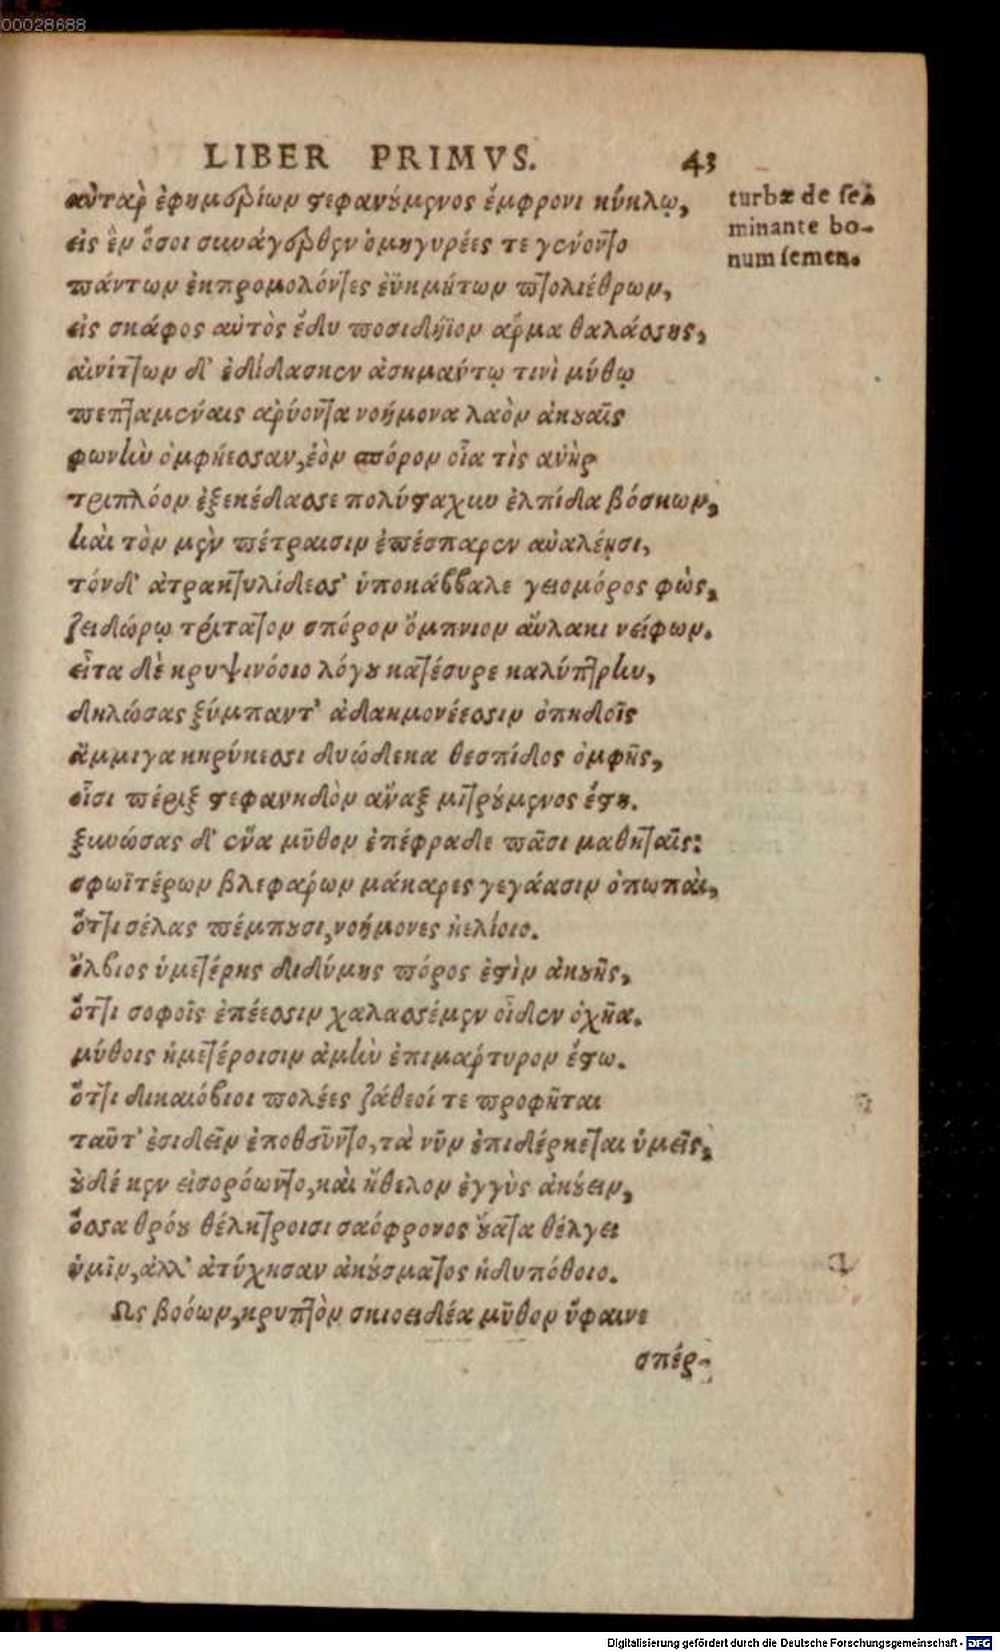 00028688
LIBER PRIMVS. 43
αὐτὰρ ἐφημερίων στεφανούμενος ἔμφρονι κύκλῳ,
turbæ de se-
εἰς ἓν ὅσοι συνάγερθεν ὁμηγυρέες τε γένοντο
minante bo-
πάντων ἐκπρομολόντες ἐϋκμήτων πτολιέθρων,
num semen.
εἰς σκάφος αὐτὸς ἔδυ ποσιδήϊον ἅρμα θαλάσσης,
αἰνίττων δ' ἐδίδασκεν ἀσημάντῳ τινὶ μύθῳ
πεπταμέναις ἀρύοντα νοήμονα λαὸν ἀκουαῖς
φωνὴν ὀμφήεσσαν, ἑὸν σπόρον οἷα τὶς ἀνὴρ
τριπλόον ἐξεκέδασσε πολύσταχυν ἐλπίδα βόσκων,
καὶ τὸν μὲν πέτραισιν ἐπέσπαρεν αὐαλέῃσι,
τόνδ' ἀτρακτυλίδεσσ' ὑποκάββαλε γειομόρος φὼς,
ζειδώρῳ τρίτατον σπόρον ὄμπνιον αὔλακι νείφων.
εἶτα δὲ κρυψινόοιο λόγου κατέσυρε καλύπτρην,
δηλώσας ξύμπαντ' ἀδαημονέεσσιν ὀπηδοῖς
ἄμμιγα κηρύκεσσι δυώδεκα θεσπίδος ὀμφῆς,
οἷσι πέριξ στεφανηδὸν ἄναξ μιτρούμενος ἔστη.
ξυνώσας δ' ἕνα μῦθον ἐπέφραδε πᾶσι μαθηταῖς:
σφωϊτέρων βλεφάρων μάκαρες γεγάασιν ὀπωπαὶ,
ὅττι σέλας πέμπουσι, νοήμονες ἠελίοιο.
ὄλβιος ὑμετέρης διδύμης πόρος ἐστὶν ἀκουῆς,
ὅττι σοφοῖς ἐπέεσσιν χαλασσέμεν οἶδεν ὀχῆα.
μύθοις ἡμετέροισιν ἀμὴν ἐπιμάρτυρον ἔστω.
ὅττι δικαιόβιοι πολέες ζάθεοί τε προφῆται
ταῦτ' ἐσιδεῖν ἐποθεῦντο, τὰ νῦν ἐπιδέρκεται ὑμεῖς,
οὐδέ κεν εἰσορόωντο, καὶ ἤθελον ἐγγὺς ἀκούειν,
ὅσσα θρόου θέλκτροισι σαόφρονος οὔατα θέλγει
ὑμῖν, ἀλλ' ἀτύχησαν ἀκούσματος ἡδυπόθοιο.
Ὣς βοόων, κρυπτὸν σκιοειδέα μῦθον ὕφαινε
σπέρ-
Digitalisierung gefördert durch die Deutsche Forschungsgemeinschaft - DFG